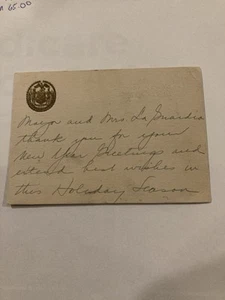 65.00
Mayor and Mrs. La Guardia
thank you for your
New Year Greetings and
extend best wishes in
this Holiday Season